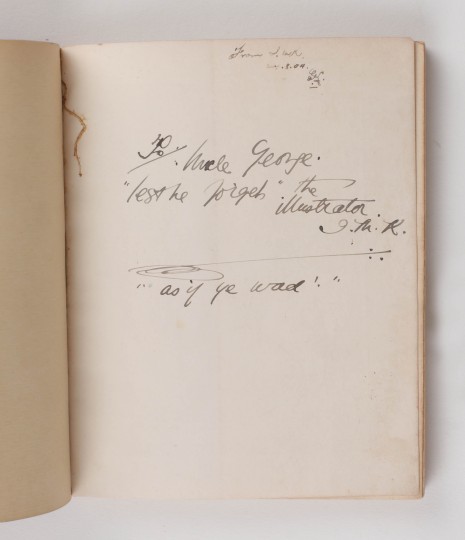 From
.8.04.
To. Uncle George.
"lest he forgets" the
illustrator.
J. M. K.
"" as if ye wad! ."